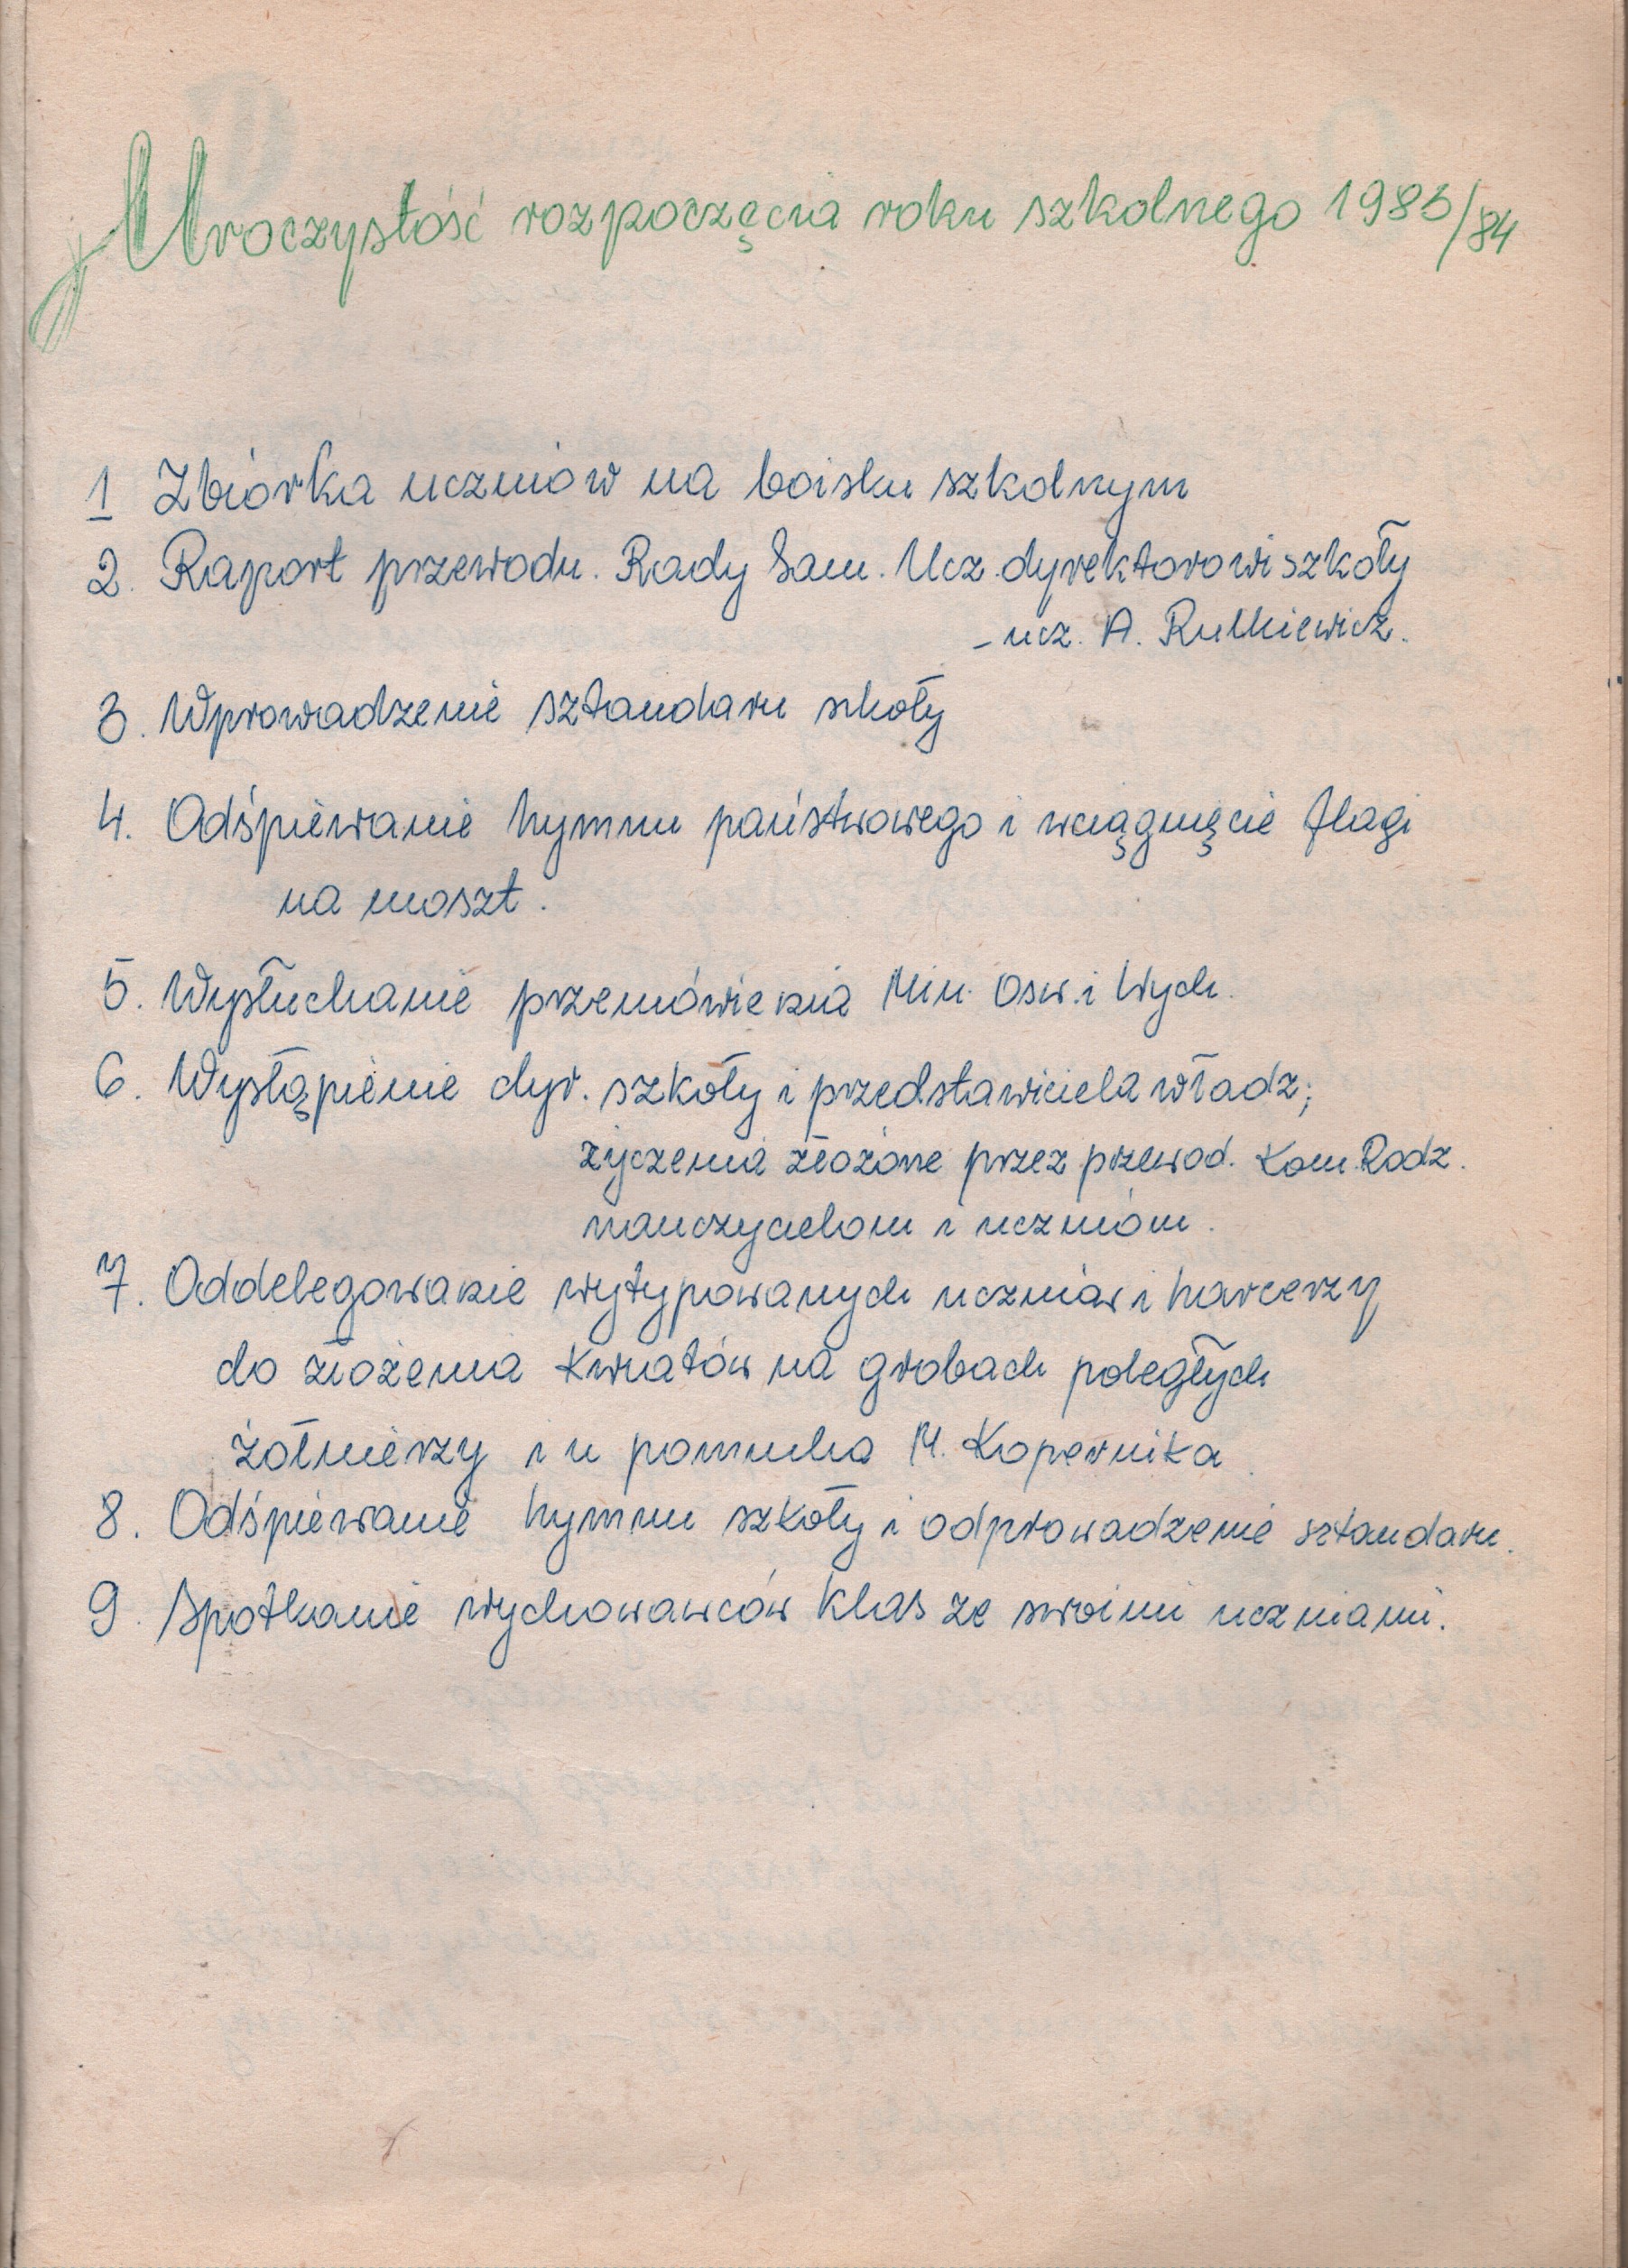 Uroczystość rozpoczęcia roku szkolnego 1983/84
1 Zbiórka uczniów na boisku szkolnym
2. Raport przewodn. Rady Sam. Ucz. dyrektorowi szkoły
- ucz. A. Rutkiewicz.
3. Wprowadzenie sztandaru szkoły
4. Odśpiewanie hymnu państwowego i wciągnięcie flagi
na maszt.
5. Wysłuchanie przemówienia Min. Osw. i Wych.
6. Wystąpienie dyr. szkoły i przedstawiciela władz;
życzenia złożone przez przewod. Kom. Rodz.
nauczycielom i uczniom.
7. Oddelegowanie wytypowanych uczniów i harcerzy
do złożenia kwiatów na grobach poległych
żołnierzy i u pomnika M. Kopernika
8. Odśpiewanie hymnu szkoły i odprowadzenie sztandaru.
9. Spotkanie wychowawców klas ze swoimi uczniami.